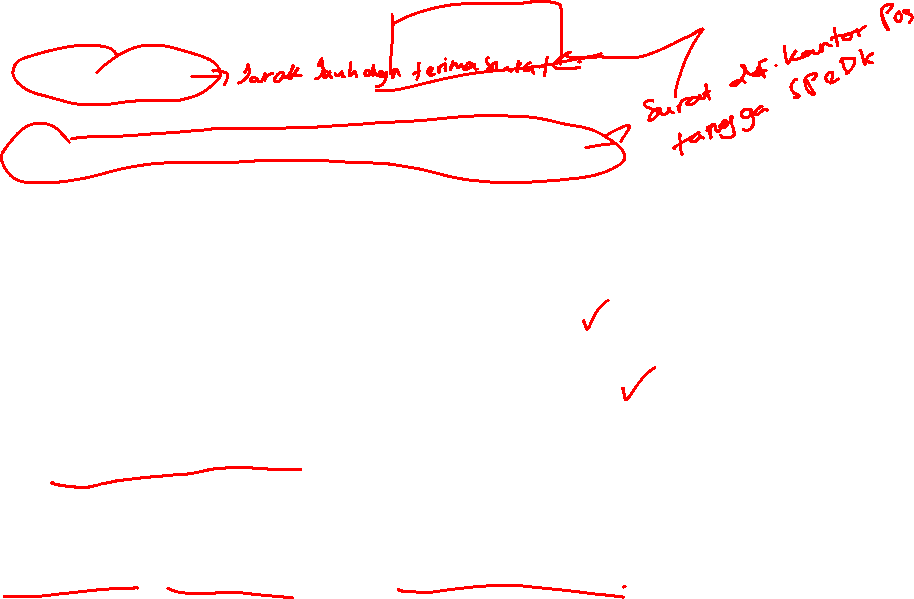 Jarak Jauh dgn terima Surat
Surat dr. kantor Pos
tangga SPeDk